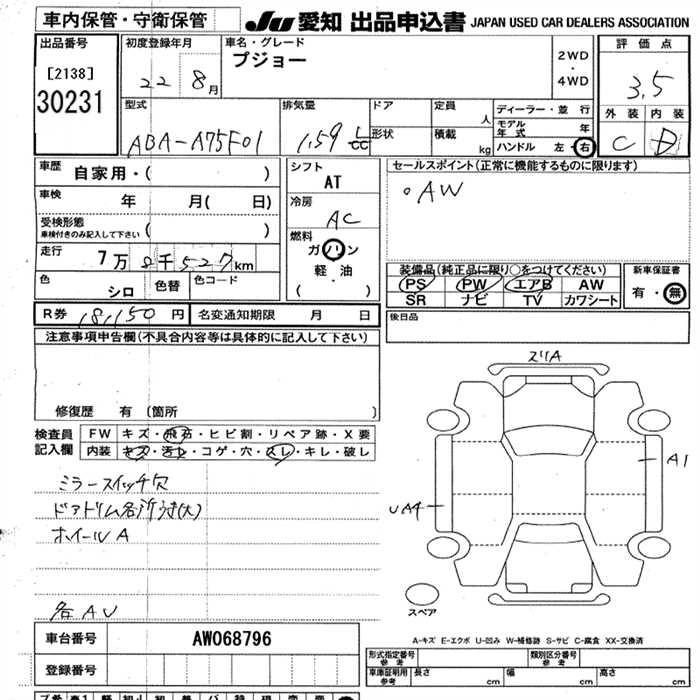 車内保管・守衛保管
JU 愛知 出品申込書 JAPAN USED CAR DEALERS ASSOCIATION
出品番号
[2138]
30231
初度登録年月
22 8月
車名・グレード
プジョー
2WD
・
4WD
評価点
3.5
外装 内装
C D
型式
ABA-A75F01
排気量
1.59 L
cc
ドア
形状
定員 人
積載 kg
ディーラー・並 行
モデル
年式 年
ハンドル 左・右
車歴
自家用・( )
車検
年 月( 日)
受検形態
車検付きのみ記入して下さい ( )
走行
7万 8千 527km
色
シロ
色替
色コード
シフト
AT
冷房
AC
燃料
ガソリン
軽・油
( )
セールスポイント(正常に機能するものに限ります)
○AW
装備品(純正品に限り○をつけてください)
PS PW エアB AW
SR ナビ TV カワシート
新車保証書
有・無
R券 18,150 円
名変通知期限 月 日
後日品
注意事項申告欄(不具合内容等は具体的に記入して下さい)
修復歴 有 〔箇所 〕
検査員
記入欄
FW キズ・飛石・ヒビ割・リペア跡・X要
内装 キズ・汚レ・コゲ・穴・スレ・キレ・破レ
ミラースイッチ穴
ホイールA
各AU
スリA
A1
UA4
スペア
A-キズ E-エクボ U-凹み W-補修跡 S-サビ C-腐食 XX-交換済
車台番号
AW068796
登録番号
形式指定番号
参考
類別区分番号
参考
車庫証明用
参考
長さ cm
幅 cm
高さ cm